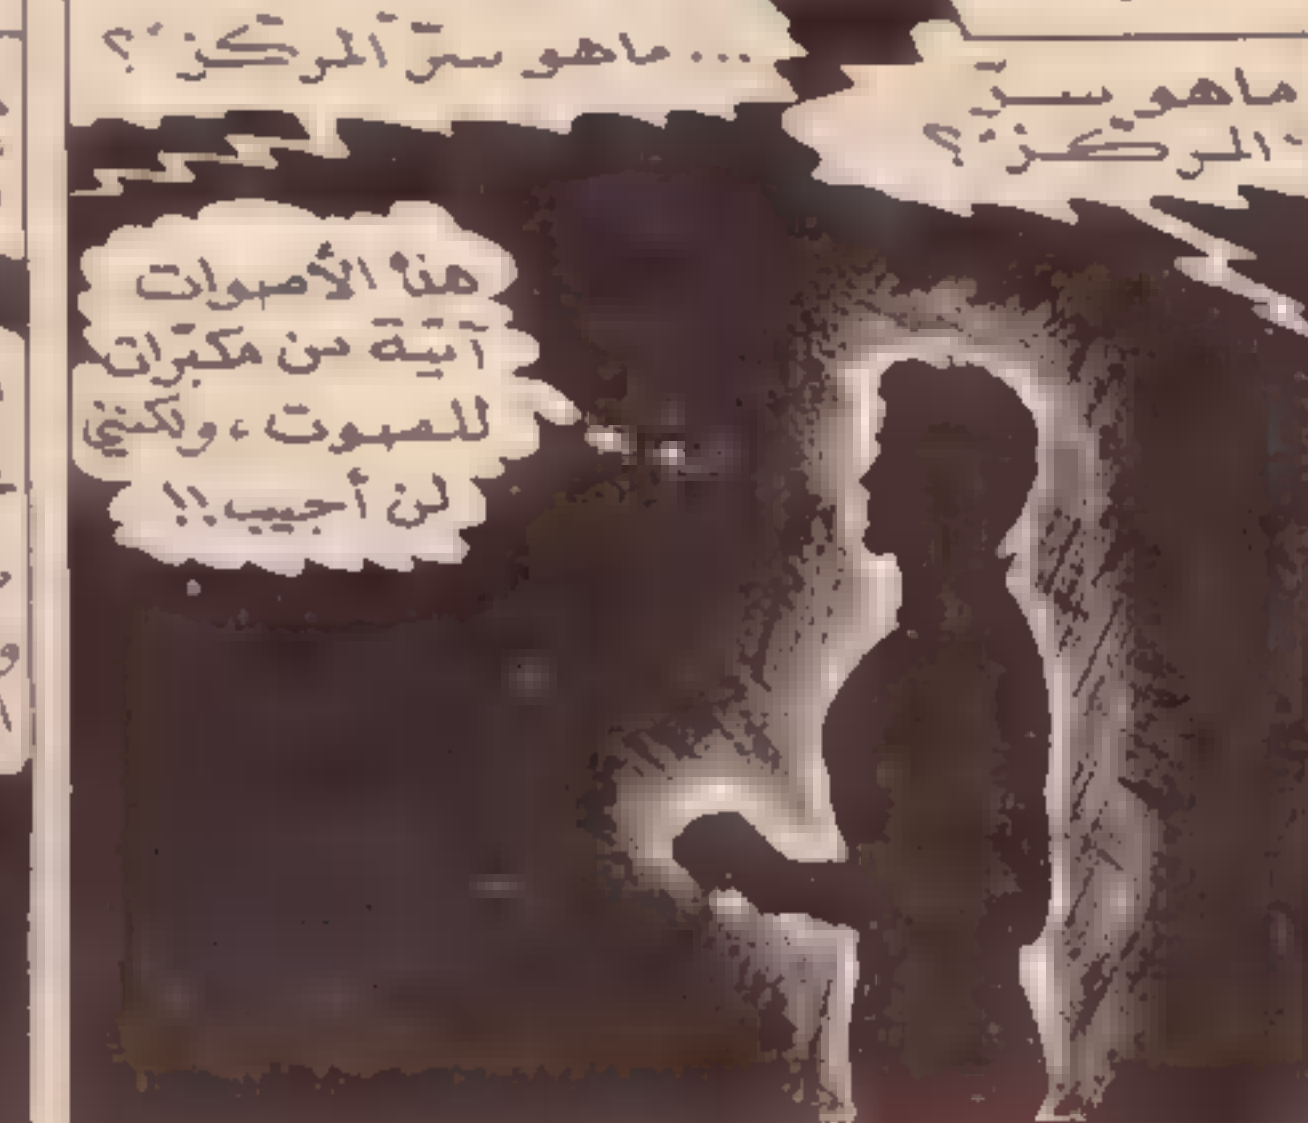 ماهو سرّ
المركز ؟
... ماهو سرّ المركز ؟
هذه الأصوات
آتية من مكبّرات
للصوت ، ولكنني
لن أجيب !!